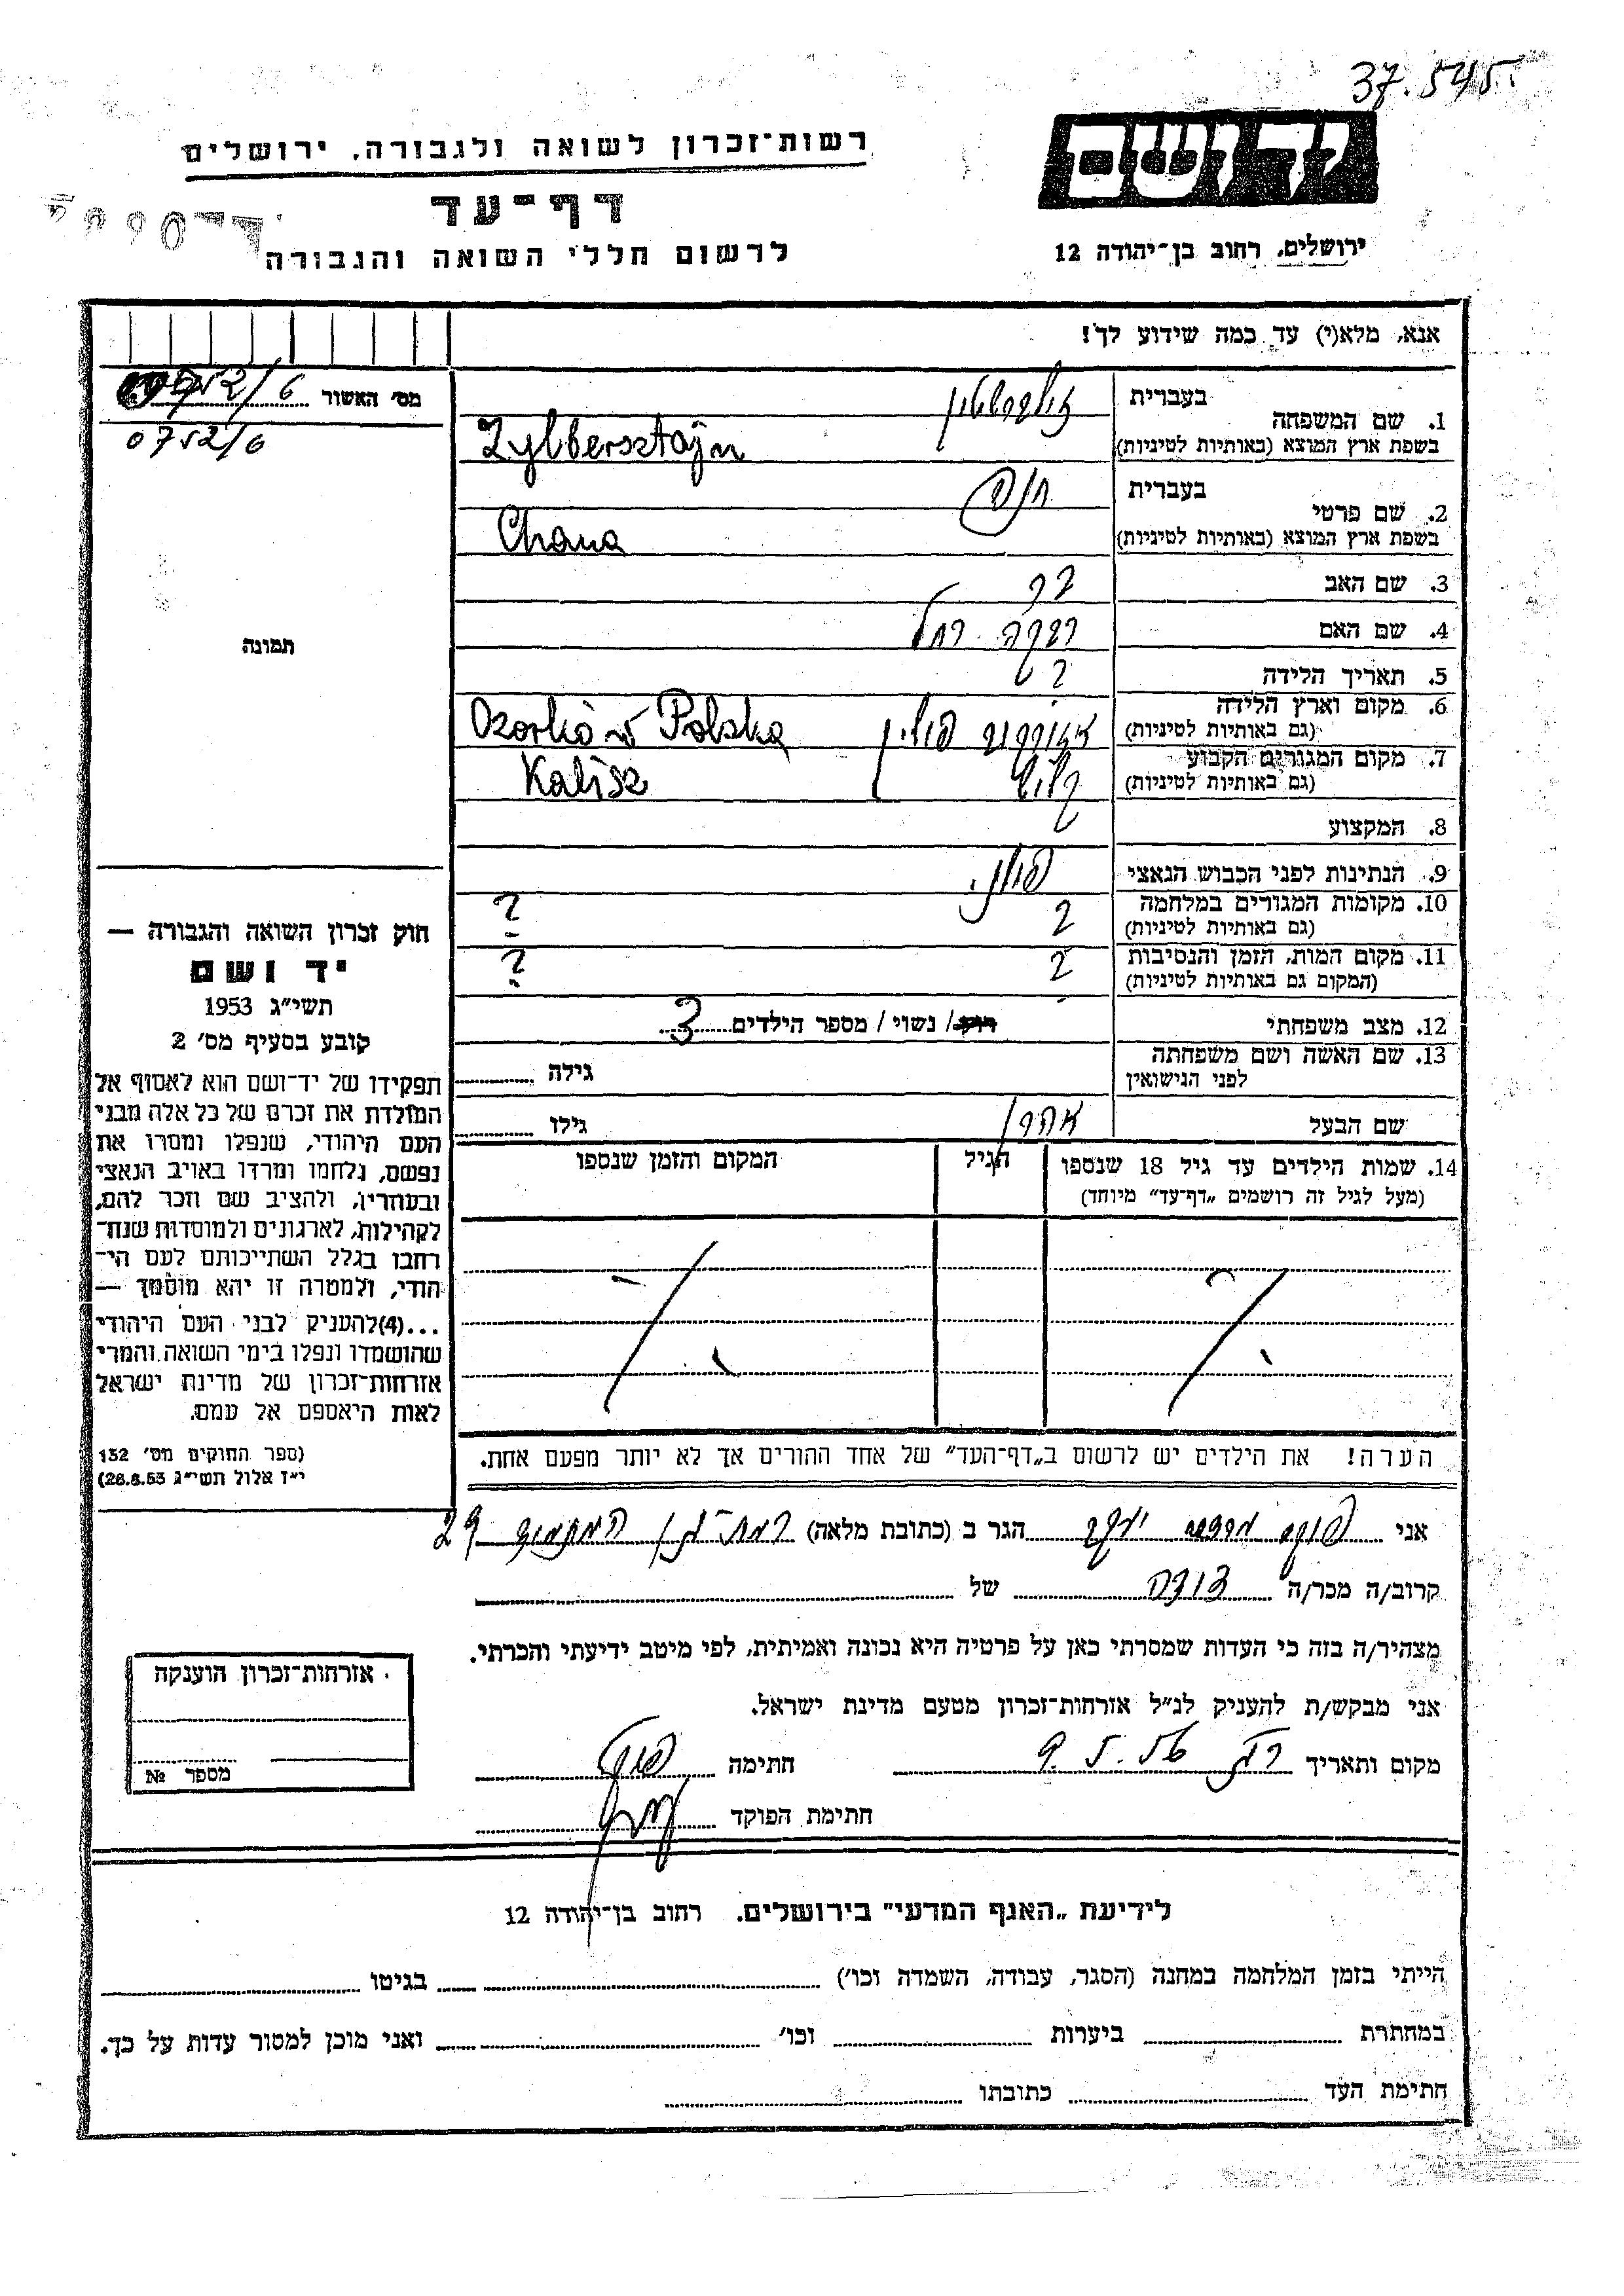 37.545
יד ושם
ירושלים, רחוב בן־יהודה 12
רשות־זכרון לשואה ולגבורה, ירושלים
דף־עד
לרשום חללי השואה והגבורה
אנא, מלא(י) עד כמה שידוע לך!
מס׳ האשור 0752/6
0752/6
תמונה
1. שם המשפחה בעברית זילברשטיין
בשפת ארץ המוצא (באותיות לטיניות) Zylbersztajn
2. שם פרטי בעברית חנה
בשפת ארץ המוצא (באותיות לטיניות) Chana
3. שם האב
4. שם האם רבקה רחל
5. תאריך הלידה ?
6. מקום וארץ הלידה (גם באותיות לטיניות) אוזורקוב פולין Ozorków Polska
7. מקום המגורים הקבוע (גם באותיות לטיניות) קליש Kalisz
8. המקצוע
9. הנתינות לפני הכבוש הנאצי פולנ.
10. מקומות המגורים במלחמה (גם באותיות לטיניות) ? ?
11. מקום המות, הזמן והנסיבות (המקום גם באותיות לטיניות) ? ?
12. מצב משפחתי רווק / נשוי / מספר הילדים 3
13. שם האשה ושם משפחתה לפני הנישואין גילה
שם הבעל אהרן גילו
14. שמות הילדים עד גיל 18 שנספו הגיל המקום והזמן שנספו
(מעל לגיל זה רושמים „דף־עד” מיוחד)
הערה! את הילדים יש לרשום ב„דף־העד” של אחד ההורים אך לא יותר מפעם אחת.
חוק זכרון השואה והגבורה —
יד ושם
תשי״ג 1953
קובע בסעיף מס׳ 2
תפקידו של יד־ושם הוא לאסוף אל
המולדת את זכרם של כל אלה מבני
העם היהודי, שנפלו ומסרו את
נפשם, נלחמו ומרדו באויב הנאצי
ובעוזריו, ולהציב שם וזכר להם,
לקהילות, לארגונים ולמוסדות שנח־
רבו בגלל השתייכותם לעם הי־
הודי, ולמטרה זו יהא מוסמך —
...(4)להעניק לבני העם היהודי
שהושמדו ונפלו בימי השואה והמרי
אזרחות־זכרון של מדינת ישראל
לאות היאספם אל עמם.
(ספר החוקים מס׳ 132
י״ז אלול תשי״ג 28.8.53)
אני הגר ב (כתובת מלאה) רמת־גן 29
קרוב/ה מכר/ה דודה של
מצהיר/ה בזה כי העדות שמסרתי כאן על פרטיה היא נכונה ואמיתית, לפי מיטב ידיעתי והכרתי.
אני מבקש/ת להעניק לנ״ל אזרחות־זכרון מטעם מדינת ישראל.
מקום ותאריך רג 9.5.56 חתימה
חתימת הפוקד
אזרחות־זכרון הוענקה
מספר №
לידיעת „האגף המדעי” בירושלים. רחוב בן־יהודה 12
הייתי בזמן המלחמה במחנה (הסגר, עבודה, השמדה וכו׳) בגיטו
במחתרת ביערות וכו׳ ואני מוכן למסור עדות על כך.
חתימת העד כתובתו